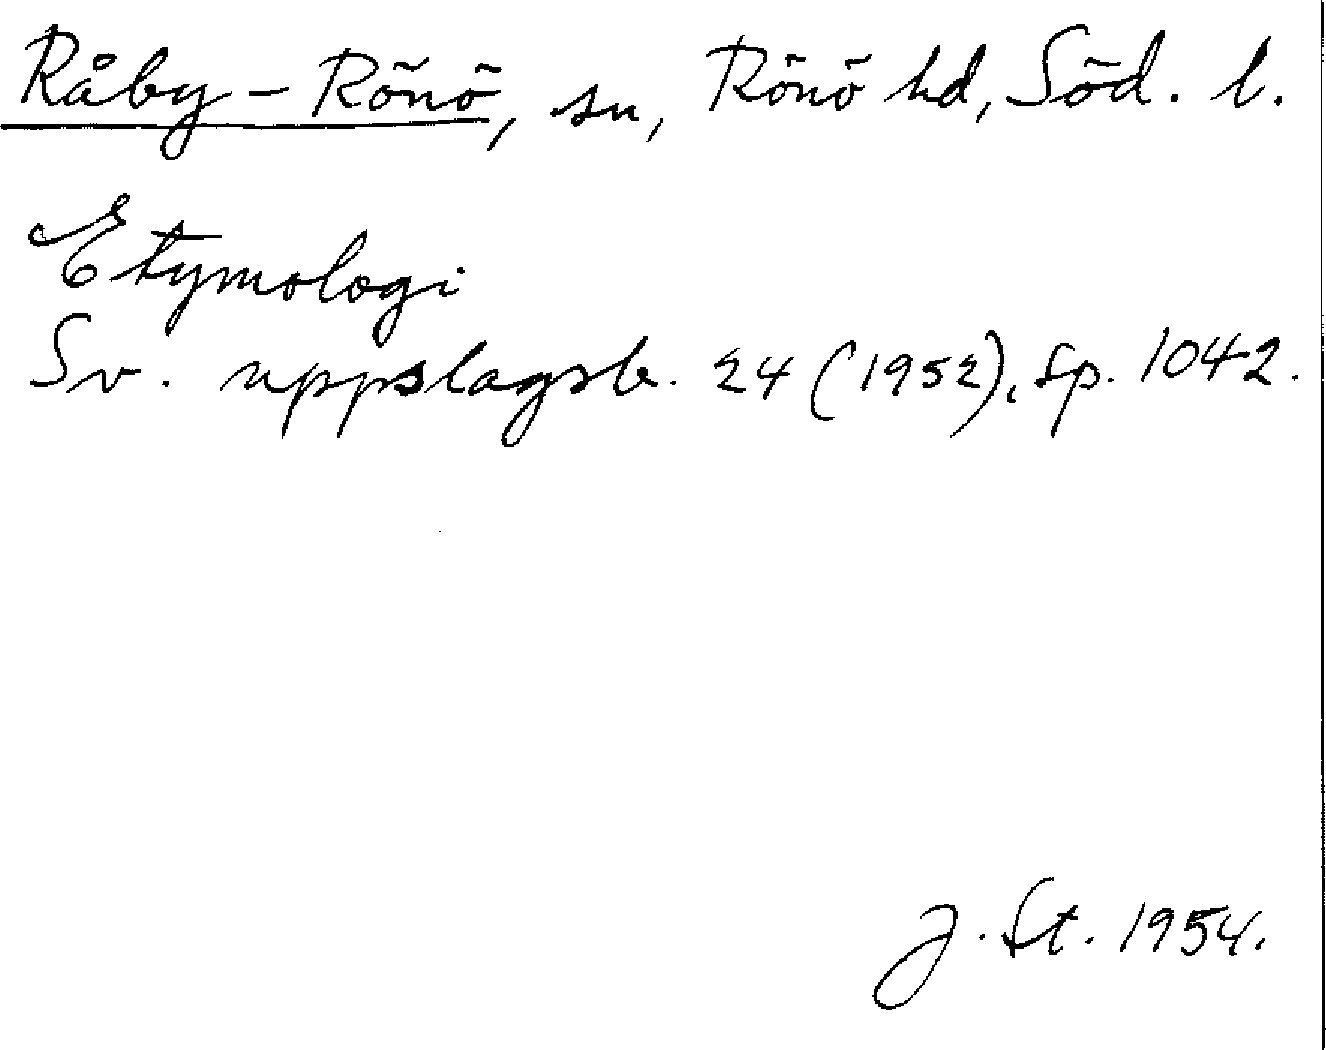 Råby-Rönö, sn, Rönö hd, Söd. l.
Etymologi
Sv. uppslagsb. 24 (1952), sp. 1042.
J. St. 1954.